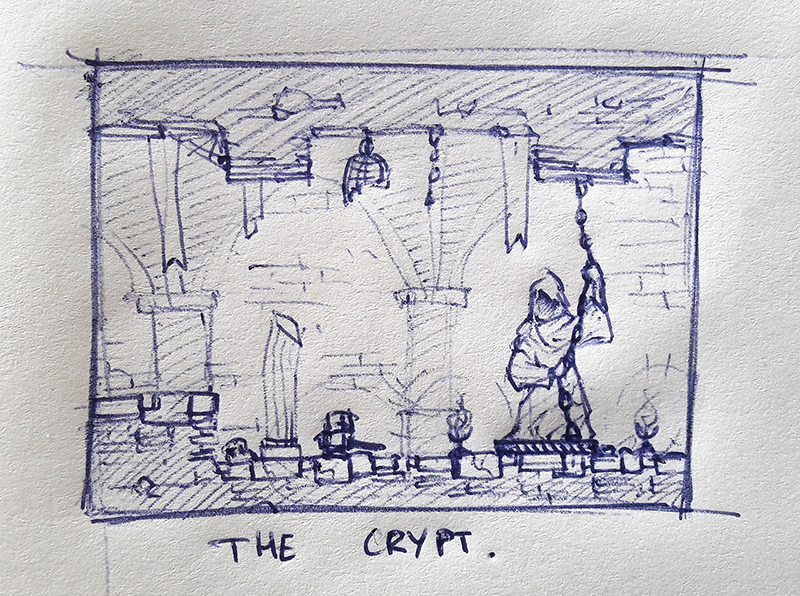 THE CRYPT.